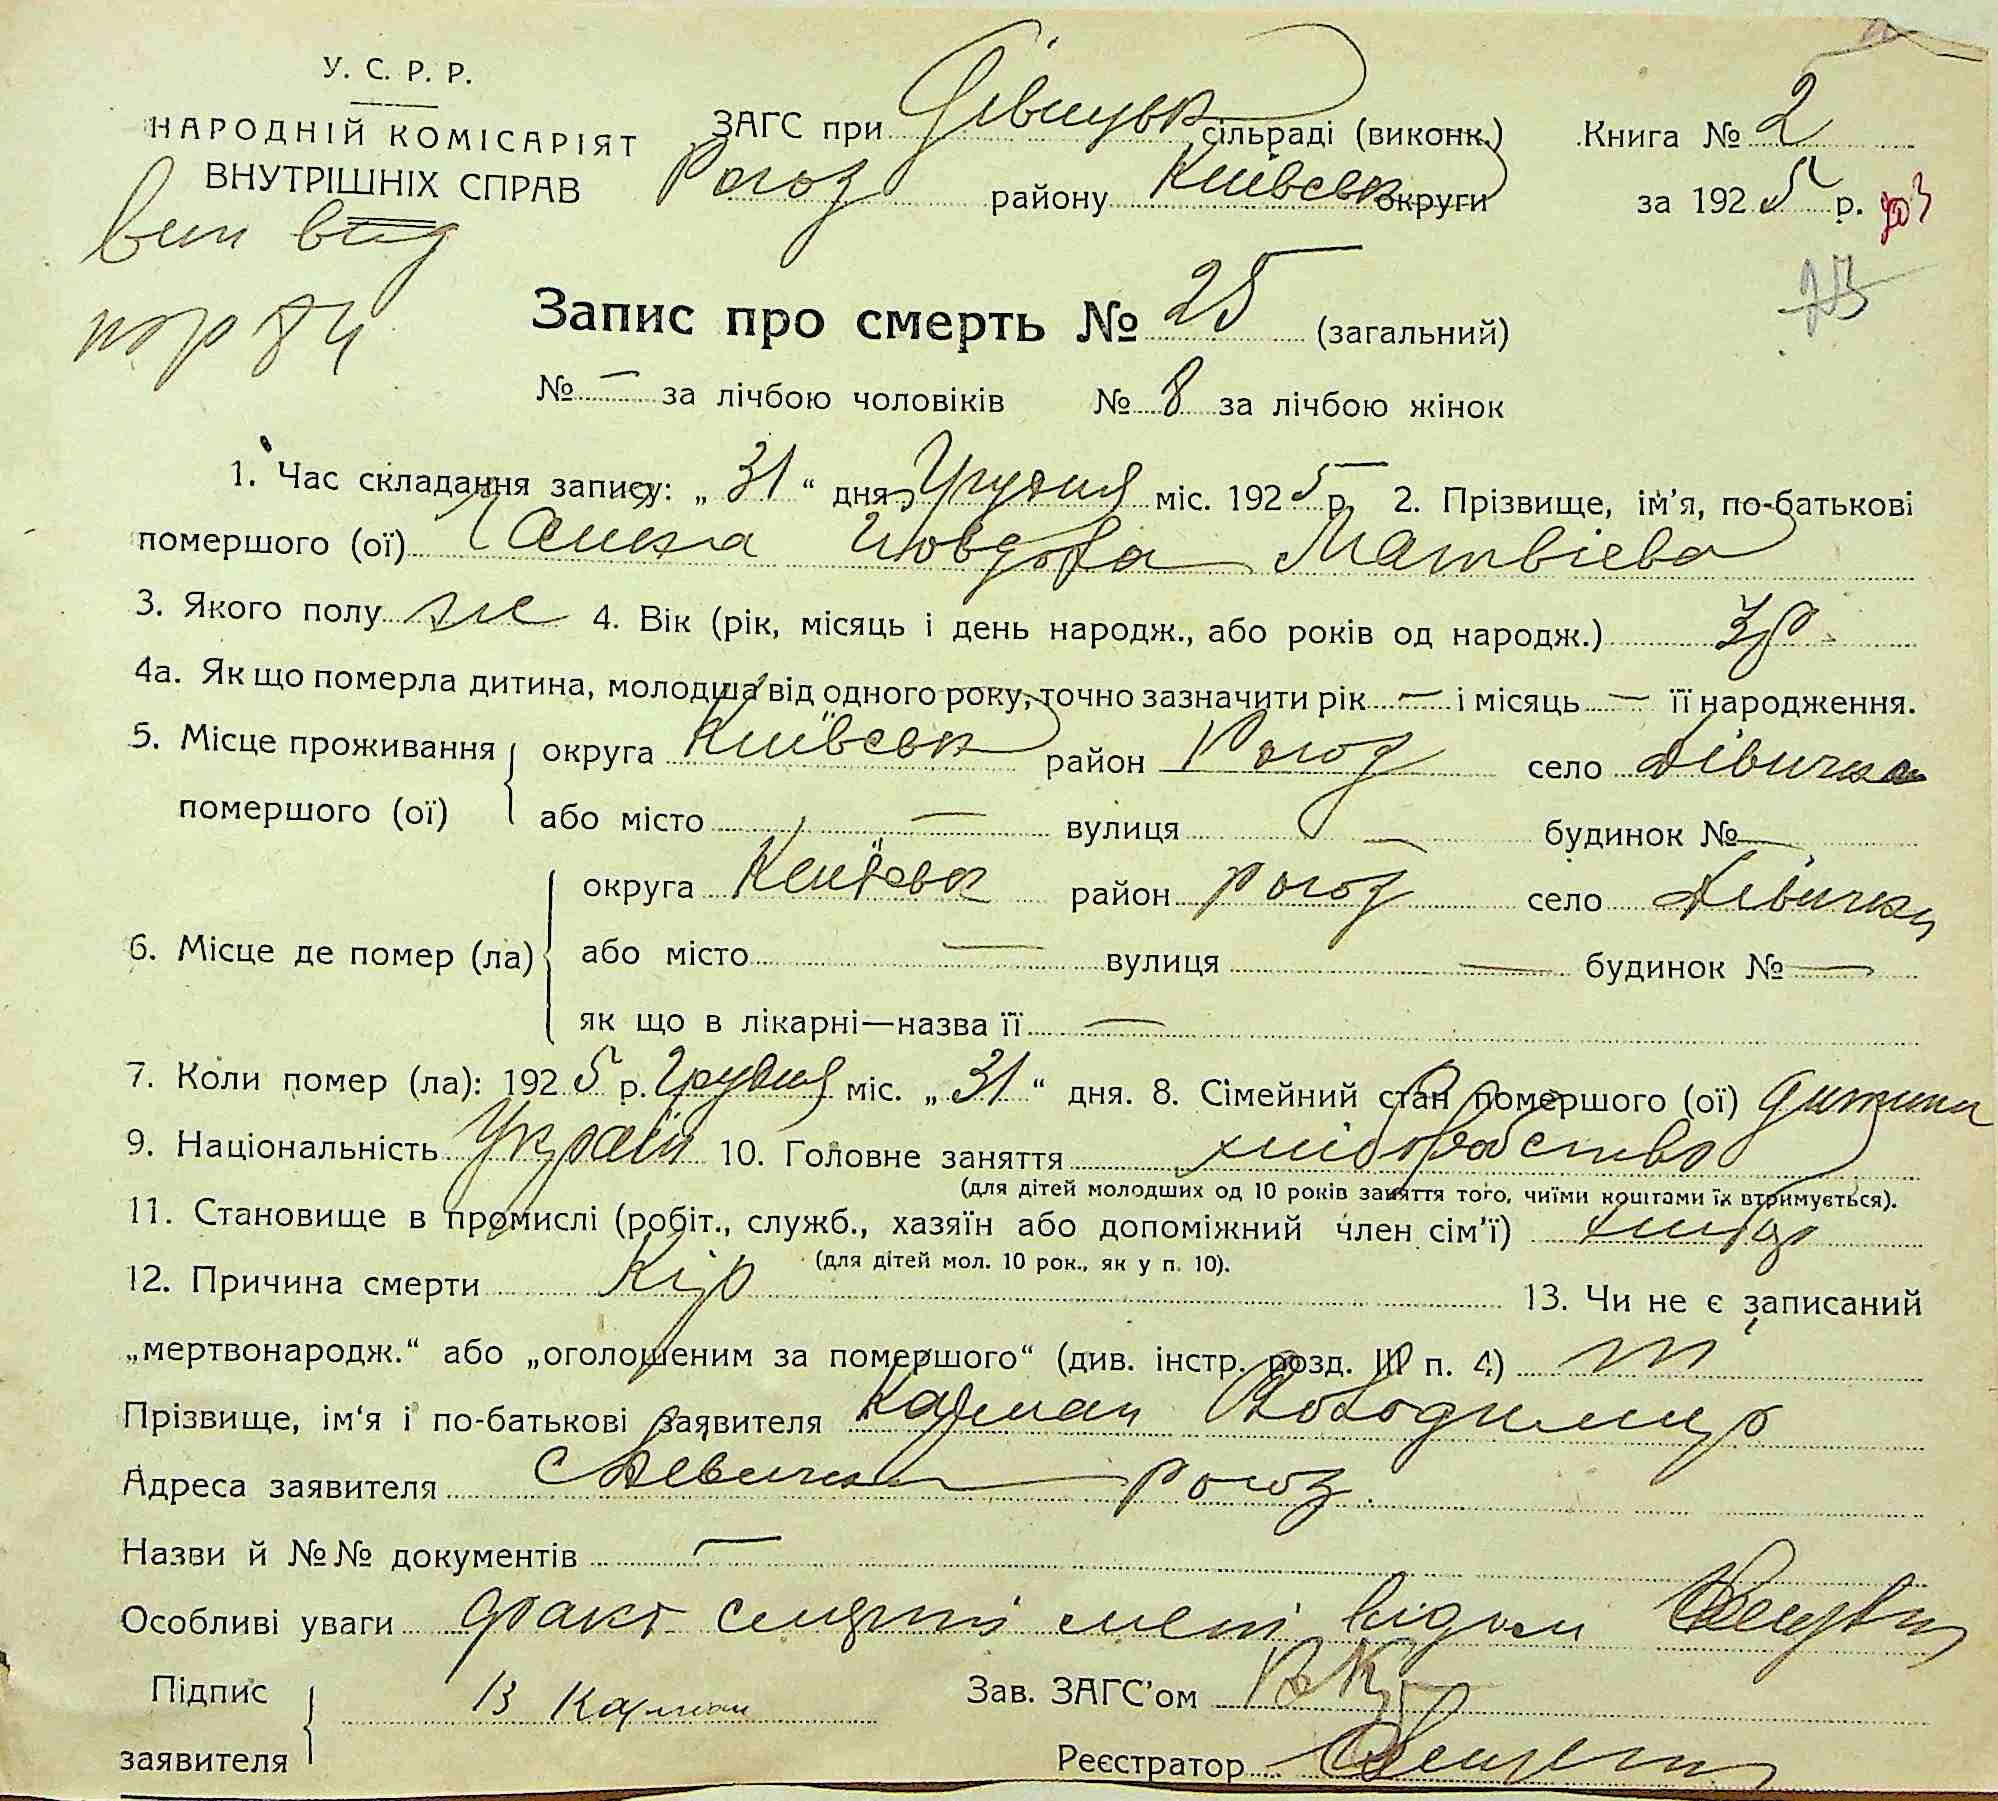 У. С. Р. Р.
НАРОДНІЙ КОМІСАРІЯТ
ВНУТРІШНІХ СПРАВ
вип вид
пор 84
ЗАГС при Дівицьк сільраді (виконк.) Книга № 2
Рогоз району Київськ округи за 1925 р.
Запис про смерть № 25 (загальний)
№ — за лічбою чоловіків № 8 за лічбою жінок
1. Час складання запису: „31“ дня Грудня міс. 1925 р. 2. Прізвище, ім'я, по-батькові
помершого (ої) Матвієва
3. Якого полу ж 4. Вік (рік, місяць і день народж., або років од народж.) 3 р
4а. Як що померла дитина, молодша від одного року, точно зазначити рік — і місяць — її народження.
5. Місце проживання помершого (ої) округа Київськ район Рогоз село Дівички
або місто — вулиця — будинок № —
6. Місце де помер (ла) округа Київськ район Рогоз село Дівички
або місто — вулиця — будинок № —
як що в лікарні—назва її —
7. Коли помер (ла): 1925 р. Грудня міс. „31“ дня. 8. Сімейний стан помершого (ої) дитина
9. Національність Україн 10. Головне заняття хліборобство
(для дітей молодших од 10 років заняття того, чиїми коштами їх втримується).
11. Становище в промислі (робіт., служб., хазяїн або допоміжний член сім'ї)
(для дітей мол. 10 рок., як у п. 10).
12. Причина смерти Кір 13. Чи не є записаний
„мертвонародж.“ або „оголошеним за помершого“ (див. інстр. розд. III п. 4)
Прізвище, ім'я і по-батькові заявителя Карман Володимир
Адреса заявителя с Дівички Рогоз
Назви й №№ документів —
Особливі уваги факт смерті мені відом
Підпис заявителя В Карман Зав. ЗАГС'ом
Реєстратор